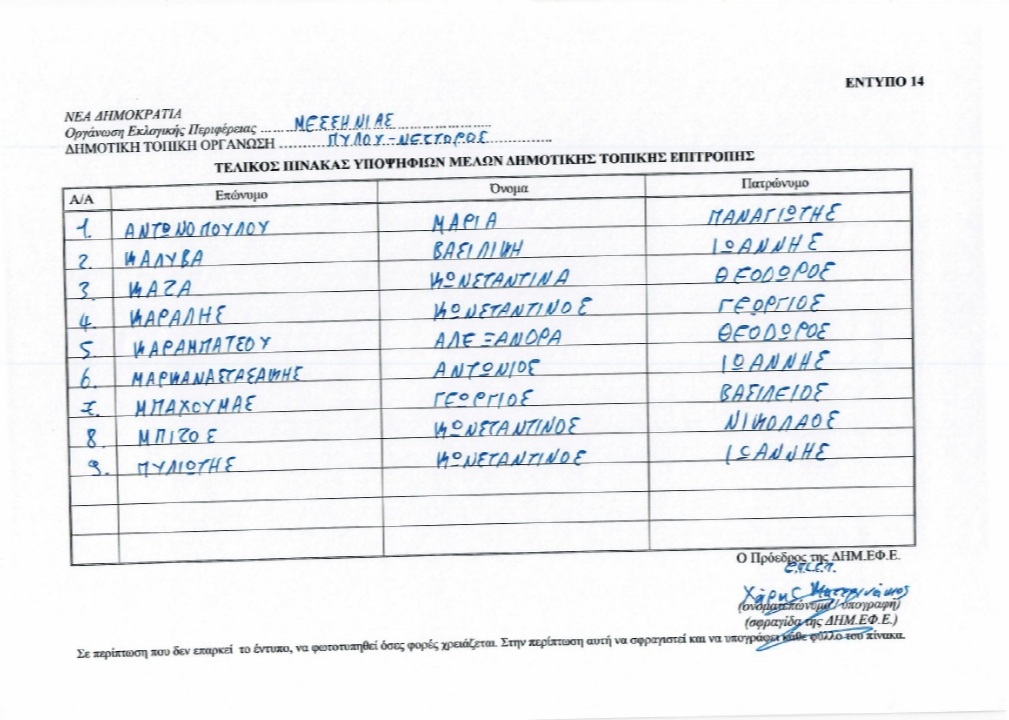 ΕΝΤΥΠΟ 14
ΝΕΑ ΔΗΜΟΚΡΑΤΙΑ
Οργάνωση Εκλογικής Περιφέρειας ΜΕΣΣΗΝΙΑΣ
ΔΗΜΟΤΙΚΗ ΤΟΠΙΚΗ ΟΡΓΑΝΩΣΗ ΠΥΛΟΥ-ΝΕΣΤΟΡΟΣ
ΤΕΛΙΚΟΣ ΠΙΝΑΚΑΣ ΥΠΟΨΗΦΙΩΝ ΜΕΛΩΝ ΔΗΜΟΤΙΚΗΣ ΤΟΠΙΚΗΣ ΕΠΙΤΡΟΠΗΣ
Α/Α Επώνυμο Όνομα Πατρώνυμο
1. ΑΝΤΩΝΟΠΟΥΛΟΥ ΜΑΡΙΑ ΠΑΝΑΓΙΩΤΗΣ
2. ΚΑΛΥΒΑ ΒΑΣΙΛΙΚΗ ΙΩΑΝΝΗΣ
3. ΚΑΖΑ ΚΩΝΣΤΑΝΤΙΝΑ ΘΕΟΔΩΡΟΣ
4. ΚΑΡΑΛΗΣ ΚΩΝΣΤΑΝΤΙΝΟΣ ΓΕΩΡΓΙΟΣ
5. ΚΑΡΑΜΠΑΤΣΟΥ ΑΛΕΞΑΝΔΡΑ ΘΕΟΔΩΡΟΣ
6. ΑΝΤΩΝΙΟΣ ΙΩΑΝΝΗΣ
7. ΜΠΑΧΟΥΜΑΣ ΓΕΩΡΓΙΟΣ ΒΑΣΙΛΕΙΟΣ
8. ΜΠΙΖΟΣ ΚΩΝΣΤΑΝΤΙΝΟΣ ΝΙΚΟΛΑΟΣ
9. ΠΥΛΙΩΤΗΣ ΚΩΝΣΤΑΝΤΙΝΟΣ ΙΩΑΝΝΗΣ
Ο Πρόεδρος της ΔΗΜ.ΕΦ.Ε.
Χάρης
(ονοματεπώνυμο / υπογραφή)
(σφραγίδα της ΔΗΜ.ΕΦ.Ε.)
Σε περίπτωση που δεν επαρκεί το έντυπο, να φωτοτυπηθεί όσες φορές χρειάζεται. Στην περίπτωση αυτή να σφραγιστεί και να υπογράφει κάθε φύλλο του πίνακα.